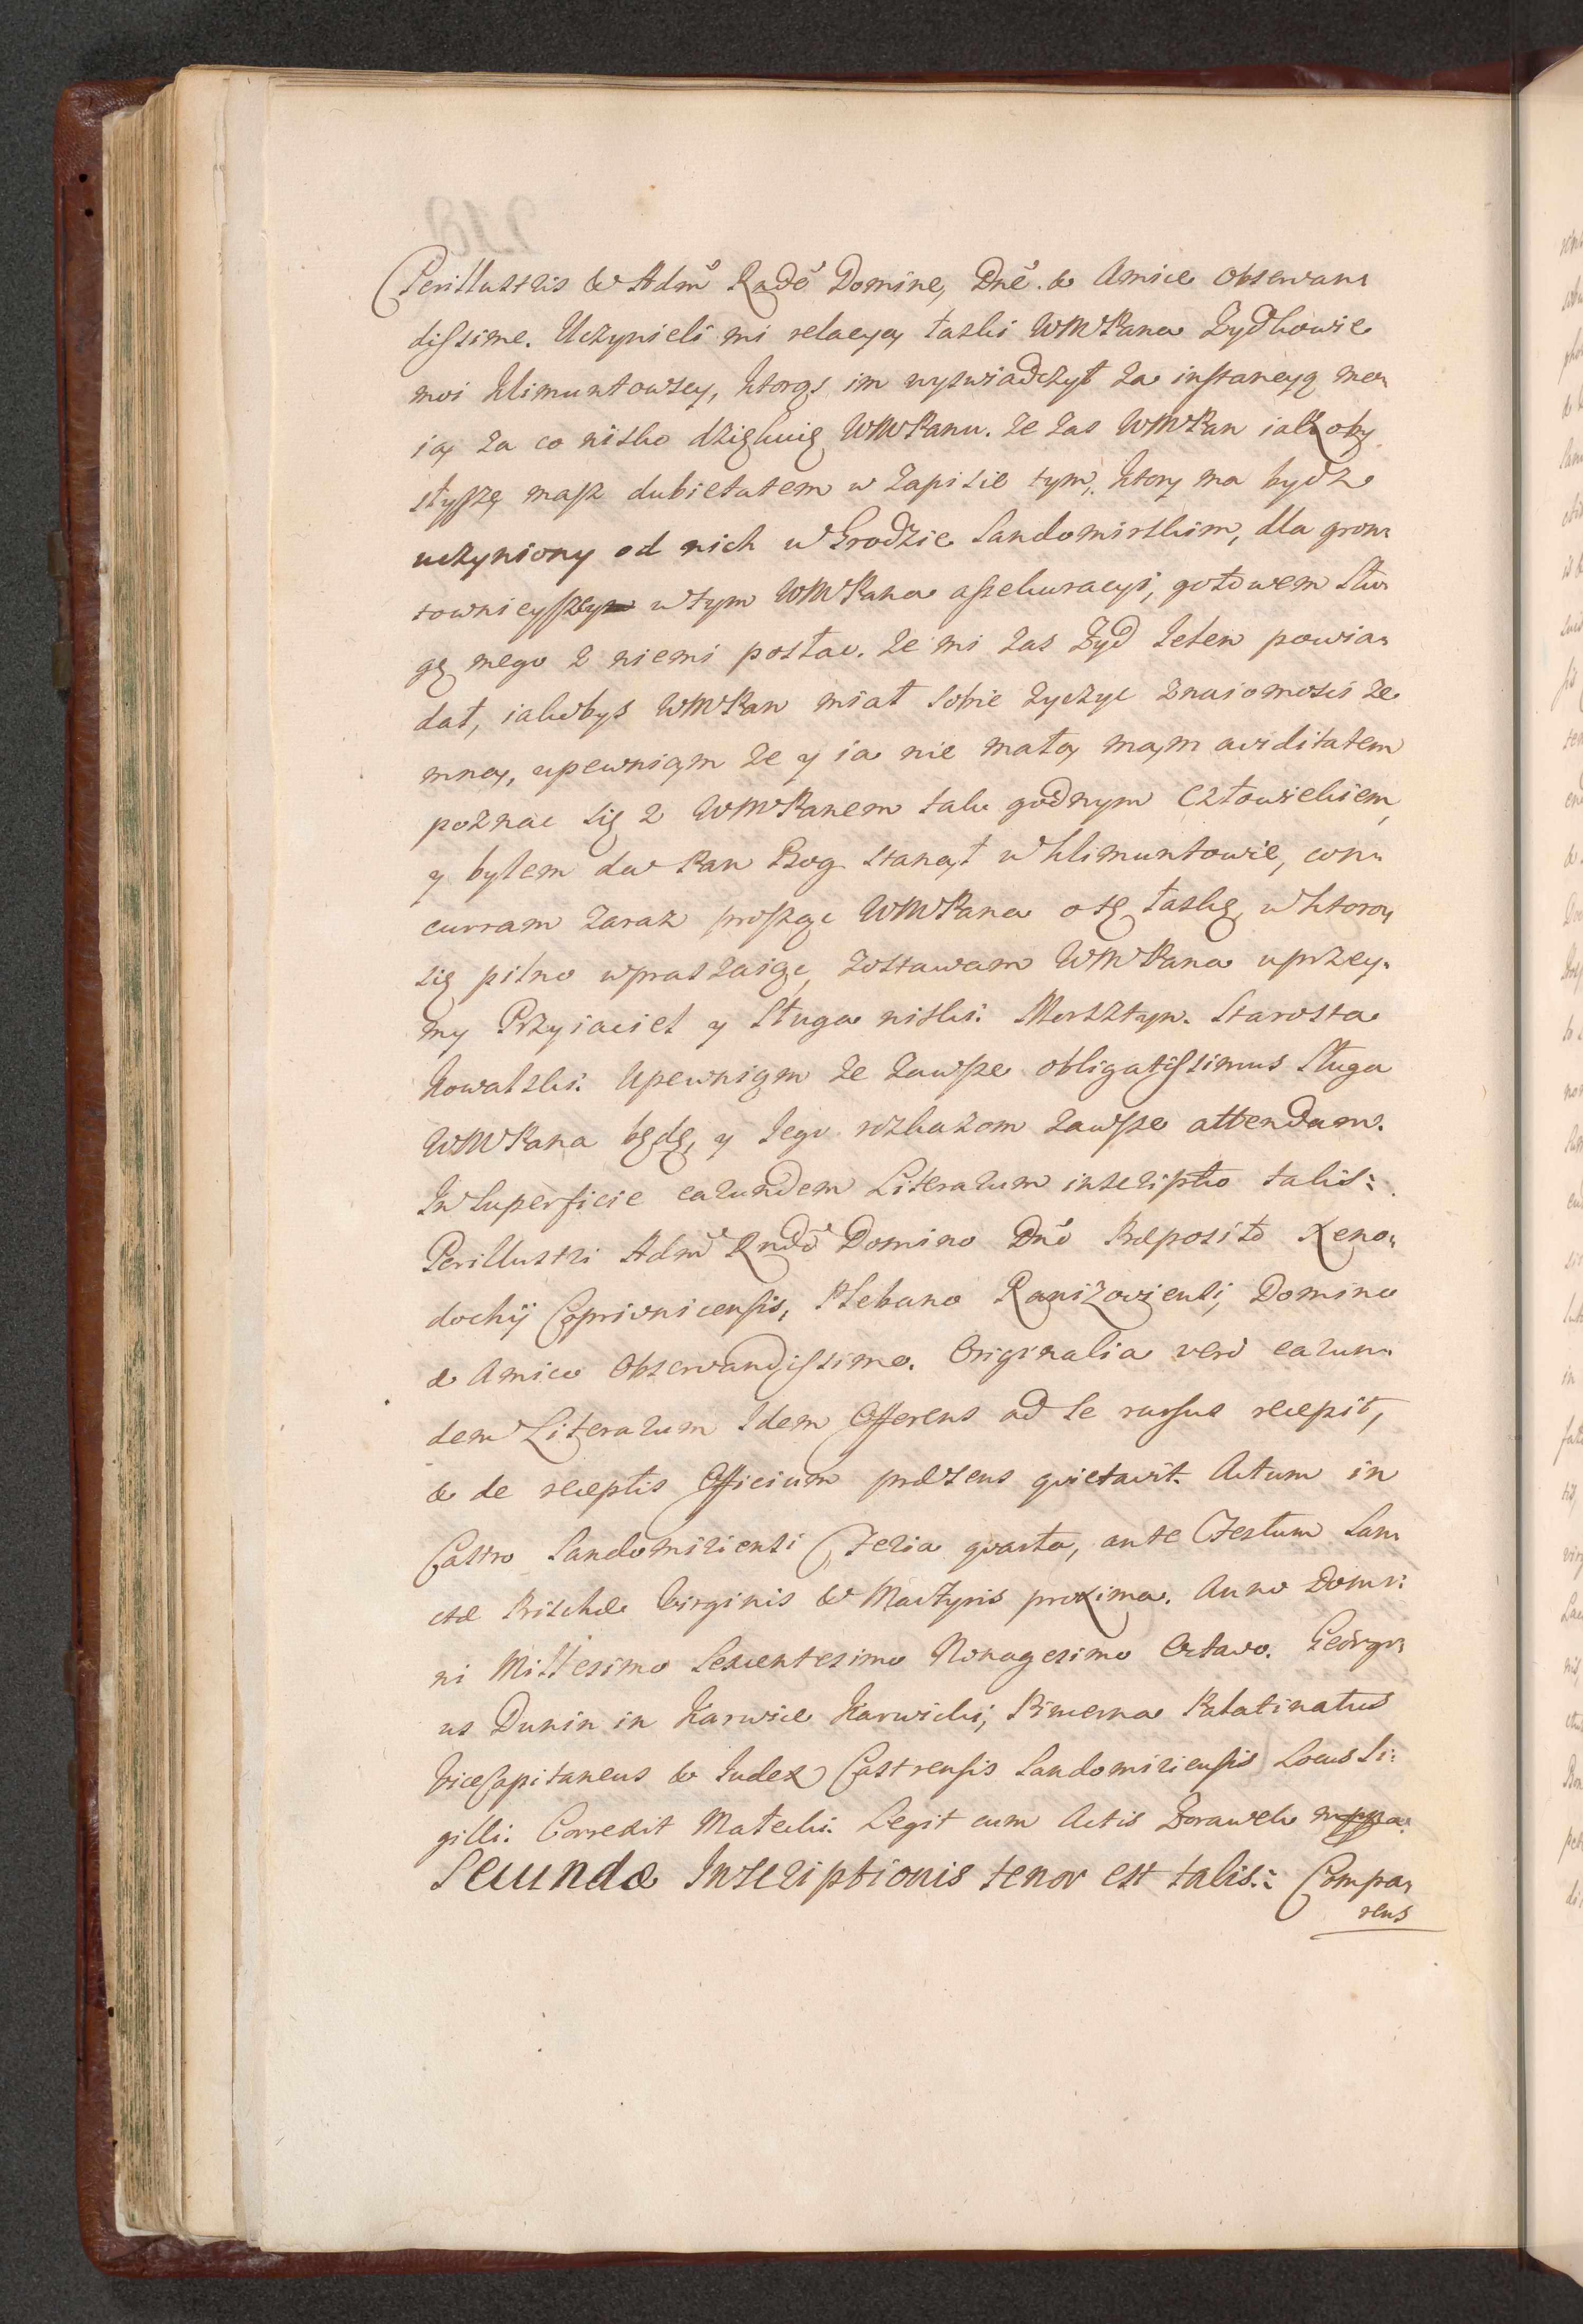 Perillustris & Adm̃ Rnde Domine, Dnẽ. & Amice Observan:
dissime. Uczynieli mi relacyą łaski WMPana Zydkowie
moi Klimuntowscy, ktorąs im wyswiadczył za instancyą mo:
ią za co nisko dziękuię WMPanu. Ze zas WMPan iako by
słyszę masz dubietatem w zapisie tym, ktory ma bydz
uczyniony od nich w Grodzie Sandomirskim, dla gron:
townieyszey w tym WMPana assekuracyi, gotowem Słu:
gę mego z niemi posłac. Ze mi zas Zyd Jeden powia:
dał, iakobys WMPan miał sobie zyczyc znaiomosci ze
mną, upewniąm ze y ia nie małą mąm aviditatem
poznac się z WMPanem tak godnym człowiekiem,
y bylem da Pan Bog stanął w Klimuntowie, con:
curram zaraz prosząc WMPana o tę łaskę, w ktorą
się pilno wpraszaiąc, zostawam WMPana uprzey:
my Przyiaciel y Sługa niski. Morsztyn. Starosta
Kowalski. Upewniąm ze zawsze obligatissimus Sługa
WMPana będę, y Jego rozkazom zawsze attendam.
In Superficie earundem Literarum inscriptio talis:
Perillustri Adm̃ Rndõ Domino Dnõ Præposito Xeno:
dochij Coprivnicensis, Plebano Ranizoviensi, Domino
& Amico Observandissimo. Originalia verò earun:
dem Literarum Idem Offerens ad se rursus recepit,
& de receptis Officium præsens quietavit. Actum in
Castro Sandomiriensi Feria quarta, ante Festum San:
ctæ Priscæ Virginis & Martyris proxima. Anno Domi:
ni Millesimo Sexcentesimo Nonagesimo Octavo. Georgi:
us Dunin in Karwice Karwicki, Pincerna Palatinatus
ViceCapitaneus & Judex Castrensis Sandomiriensis Locus Si:
gilli. Correxit Małecki. Legit cum Actis Zorawek mppa.
Secundæ Inscriptionis tenor est talis: Compa:
rens